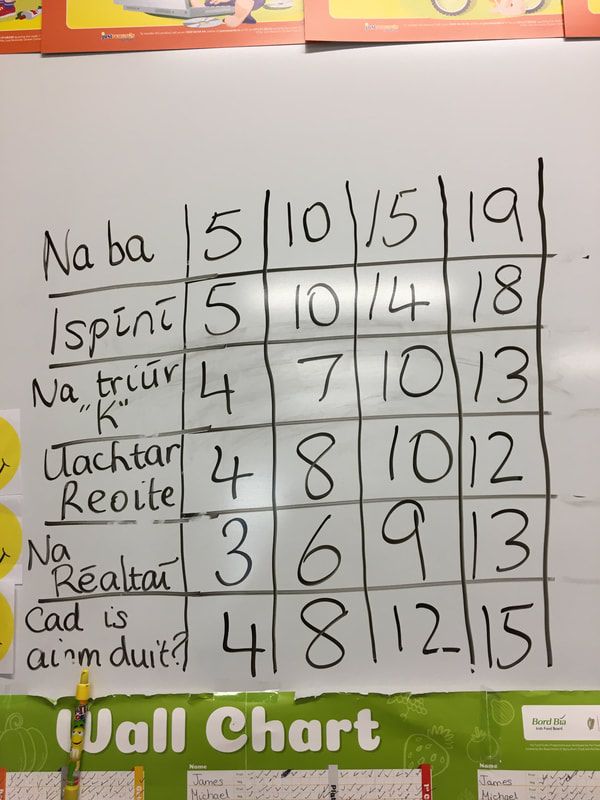 Na ba 5 10 15 19
Ispīnī 5 10 14 18
Na triūr
"K" 4 7 10 13
Uachtar
Reoite 4 8 10 12
Na
Rēaltaī 3 6 9 13
Cad is
ainm duit? 4 8 12 15
Wall Chart
Bord Bia
Irish Food Board
Name
James
Michael
Name
James
Michael